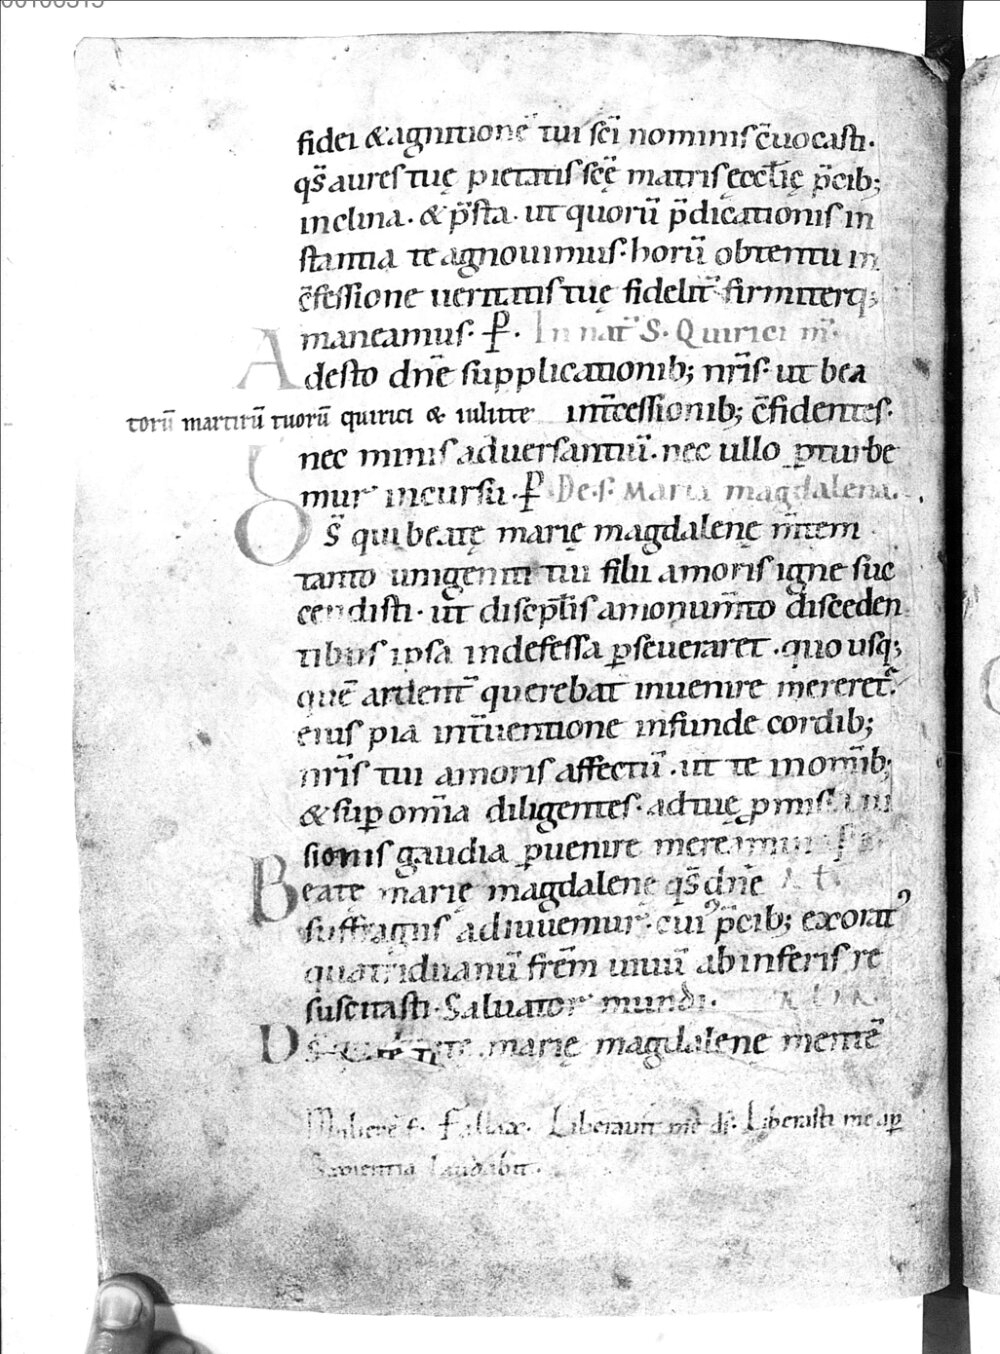 fidei & agnitionē tui sc̄i nominis c̄uocasti.
qs̄ aures tuę pietatis scę̄ matris ęcc̄lię p̄cib;
inclina. & p̄sta. ut quorū p̄dicationis in
stantia te agnouimus. horū obtentu in
c̄fessione ueritatis tuę fidelit̄ firmiterq;
maneamus. P̄. In nat̄ S. Quirici m̄.
Adesto dn̄e supplicationib; nr̄is. ut bea
torū martirū tuorū quirici & iulitte int̄cessionib; c̄fidentes.
nec minis aduersantiū. nec ullo ꝑturbe
mur incursu. P̄ De. s. Maria magdalena.
Ds̄ qui beatę marię magdalenę m̄tem
tanto unigeniti tui filii amoris igne suc
cendisti. ut discipl̄is a monum̄to disceden
tibus ipsa indefessa ꝑseueraret. quo usq;
quē ardent̄ querebat inuenire mereret̄.
eius pia int̄uentione infunde cordib;
nr̄is tui amoris affectū. ut te in om̄ib;
& suꝑ om̄ia diligentes. ad tuę ꝓmis
sionis gaudia ꝑuenire mereamur
Beatę marię magdalenę qs̄ dn̄e
suffragiis adiuuemur. cui᾿ p̄cib; exorat᾿
quatriduanū fr̄em uiuū ab inferis re
suscitasti. Saluator mundi.
Ds̄ marię magdalene mentē
Mulierē f. Fallax. Liberauit me ds̄. Liberasti me
Sapientia laudabit.